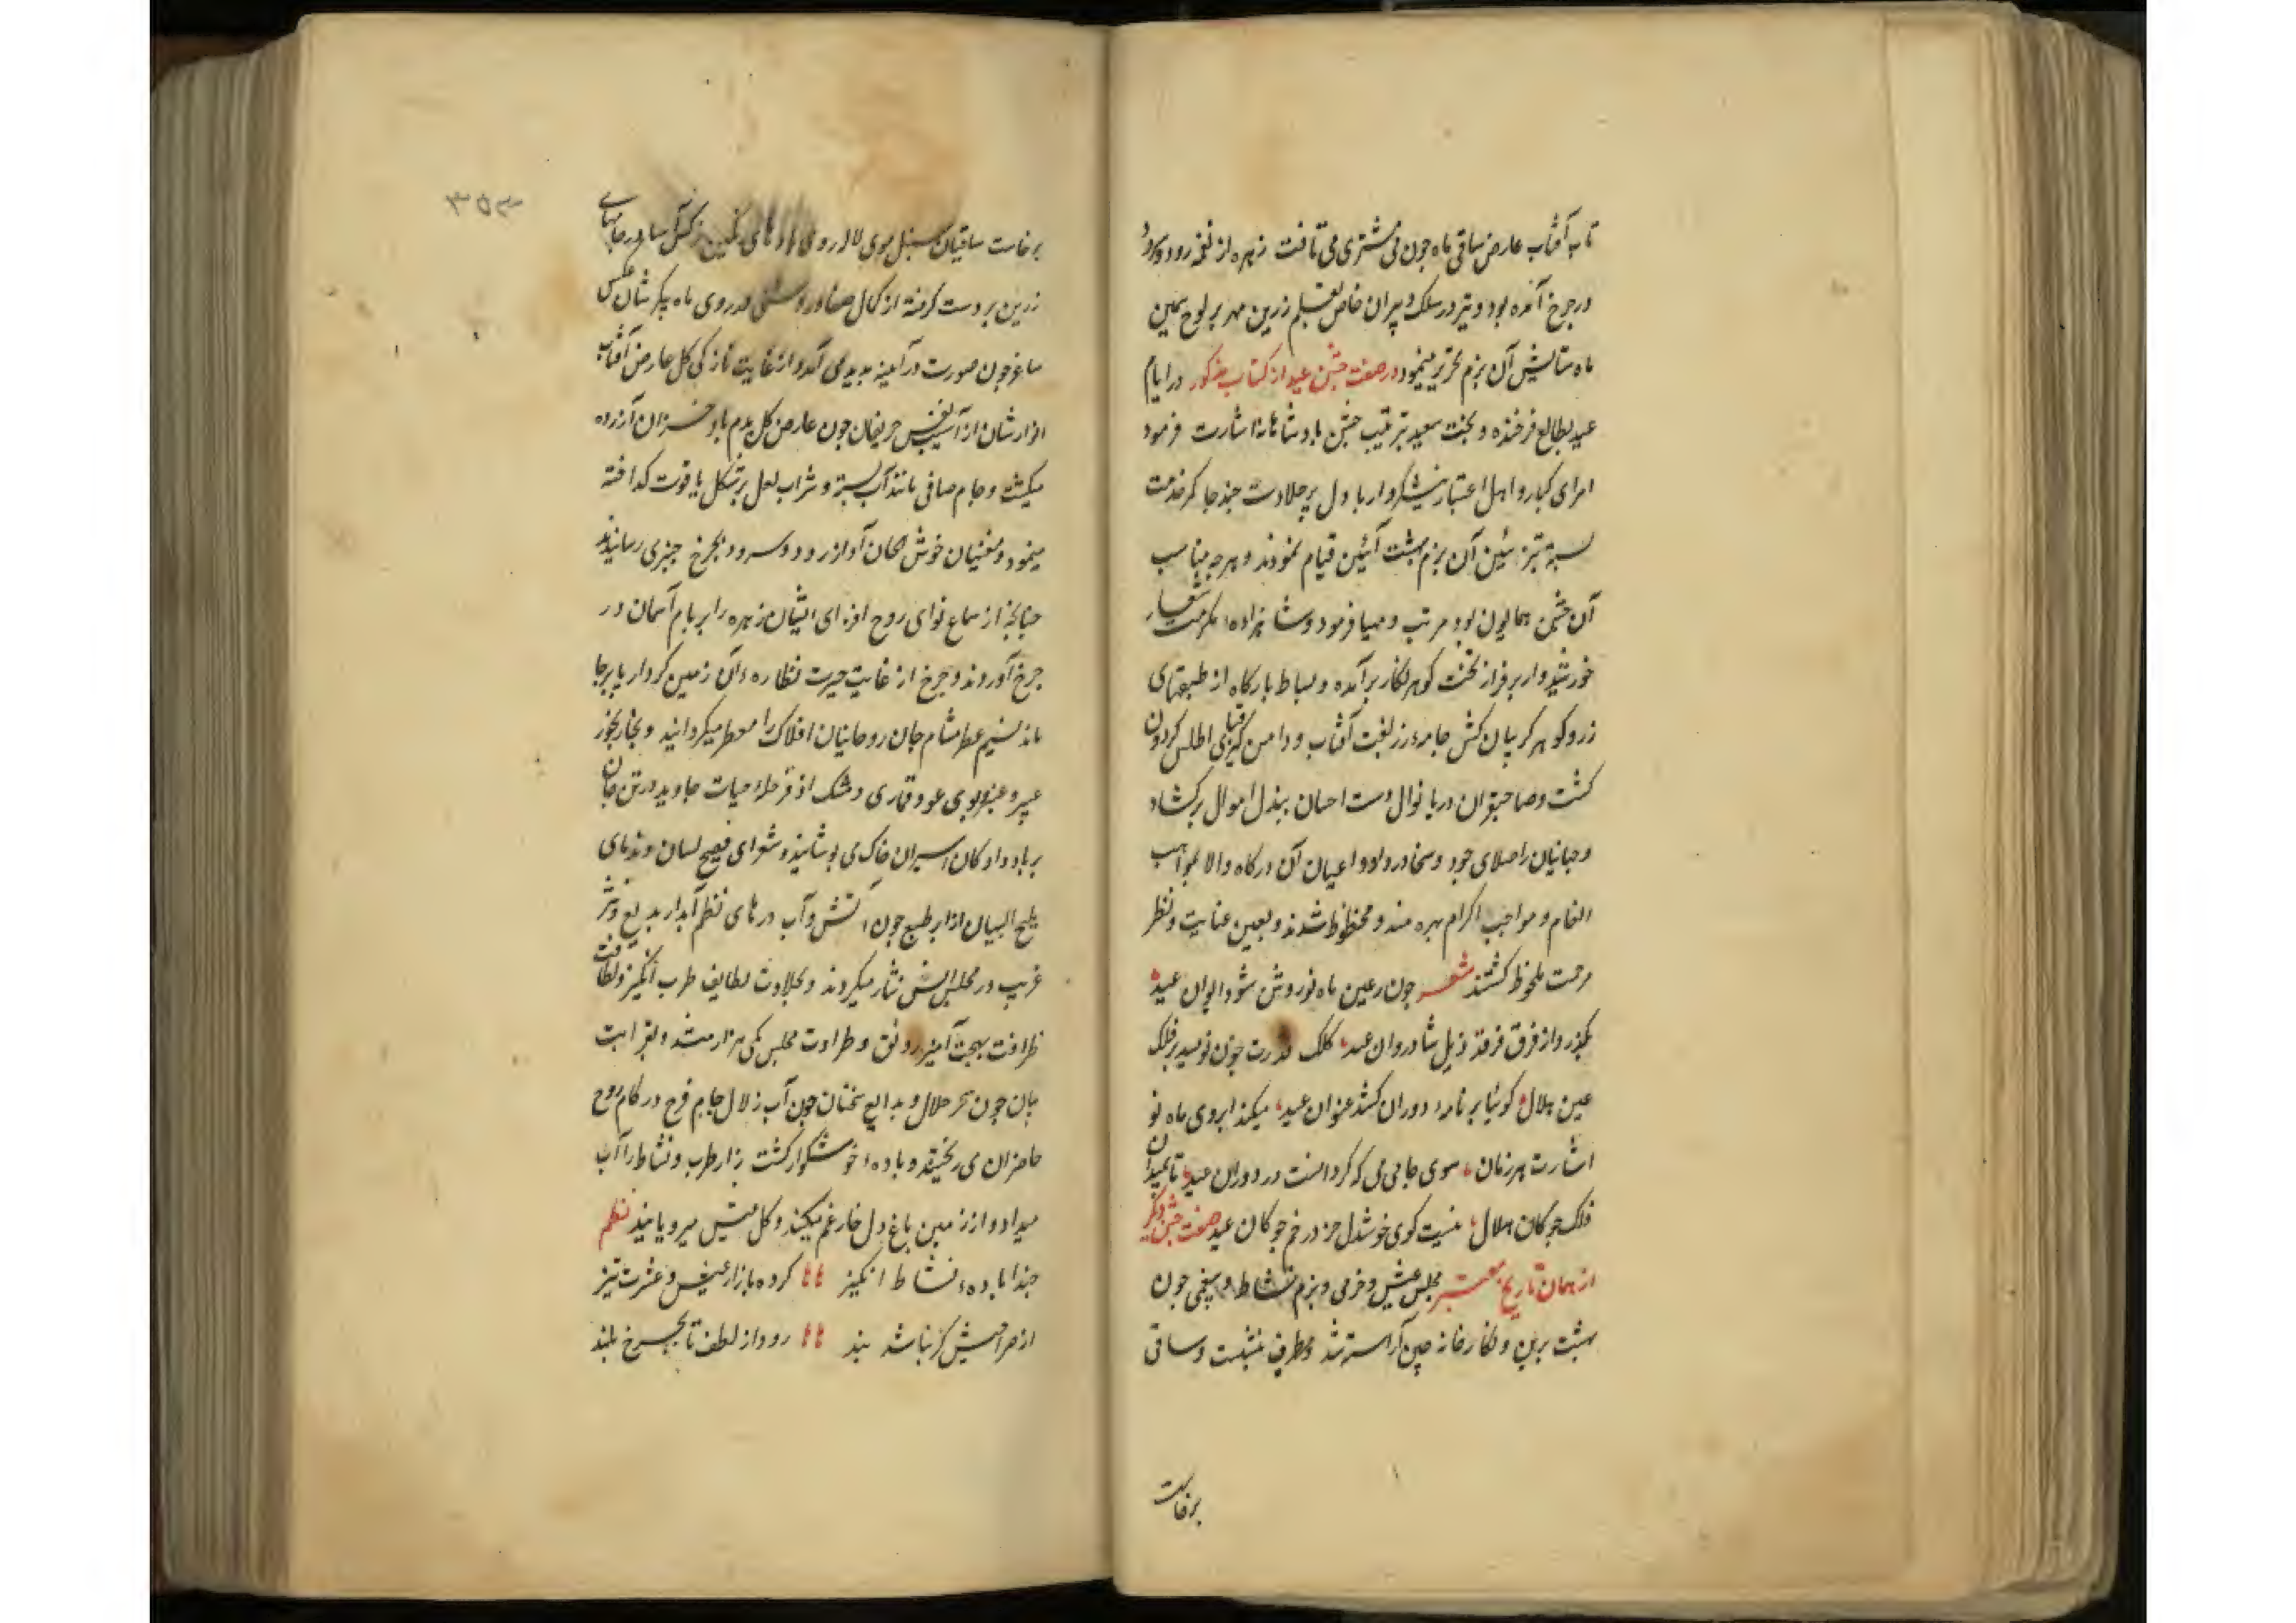 تاب آفتاب عارض ساقی ماه چون می مشتری می تافت زهره از نغمه رود و سرود
در چرخ آمده بود و تیر در سلک دبیران خاص بقلم زرین مهر بر لوح سیمین
ماه ستایش آن بزم تحریر مینمود در صفت جشن عید از کتاب مذکور در ایام
عید بطالع فرخنده و بخت سعید بترتیب جشن پادشاهانه اشارت فرمود
امرای کبار و اهل اعتبار نیشکروار با دل پر حلاوت چند جا کمر خدمت
بسته بتزئین آن بزم بهشت آئین قیام نمودند و هرچه مناسب
آن جشن همایون بود مرتب و مهیا فرمود و شاهزاده مکرمت شعار
خورشیدوار بر فراز تخت گوهر نگار برآمده و بساط بارگاه از طبقهای
زر و گوهر گریبان کش جامه زربفت آفتاب و دامن گیر قبای اطلس گردون
گشت و صاحبقران دریا نوال دست احسان ببذل اموال برگشاد
و جهانیان را صلای جود و سخا در داد و اعیان آن درگاه والا بمواهب
انعام و مواجب اکرام بهره مند و محظوظ شدند و بعین عنایت و نظر
مرحمت ملحوظ گشتند شعر چون رعین ماه نو روشن شود ایوان عید
بگذرد از فرق فرقد ذیل شادروان عید کلک قدرت چون نویسد بر فلک
عین هلال گوئیا بر نامه دوران کشد عنوان عید میکند ابروی ماه نو
اشارت هر زمان سوی جام می که گردانست در دوران عید تا بمیدان
فلک چوگان هلال نیست گوی خوشدل جز در خم چوگان عید صفت جشن دیگر
از همان تاریخ معتبر مجلس عیش و خرمی و بزم نشاط و بیغمی چون
بهشت برین و نگارخانه چین آراسته شد مطرب بنشست و ساقی
برخاست
۳۵۳
برخاست ساقیان سنبل موی لاله روی رنگین ساغر جامهای
زرین بر دست گرفته از کمال صفا و روشنی در روی ماه پیکرشان عکس
ساغر چون صورت در آینه پدید می آمد و از غایت نازکی گل عارض آفتاب
انوارشان از آسیب نفس حریفان چون عارض گل بدم باد خزان آزرده
میگشت و جام صافی مانند آب بسته و شراب لعل بر شکل یاقوت گداخته
مینمود و مغنیان خوش الحان آواز رود و سرود بچرخ چنبری رسانیدند
چنانچه از سماع نوای روح افزای ایشان زهره را بر بام آسمان در
چرخ آوردند و چرخ از غایت حیرت نظاره آن زمین کردار پا برجا
ماند نسیم عطر مشام جان روحانیان افلاک را معطر میگردانید و بخار بخور
عبیر و عنبر و بوی عود قماری و مشک اذفر حله حیات جاوید در تن جان
بر باد دادگان اسیران خاک می پوشانید و شعرای فصیح لسان و ندمای
ملیح البیان از ابر طبع چون آتش و آب درهای نظم آبدار بدیع و نثر
غریب در مجلس انس نثار میکردند و بحلاوت لطایف طرب انگیز و لطافت
ظرافت بهجت آمیز رونق و طراوت مجلس یکی هزار میشد و بغرابت
بیان چون سحر حلال و بدایع سخنان چون آب زلال جام فرح در کام روح
حاضران می ریختند و باده خوشگوار کشت زار طرب و نشاط را آب
میداد و از زمین باغ دل خار غم میکند و گل عیش میرویانید نظم
حبذا باده نشاط انگیز کرده بازار عیش و عشرت تیز
از صراحیش گر نباشد بند رود از لطف تا بچرخ بلند